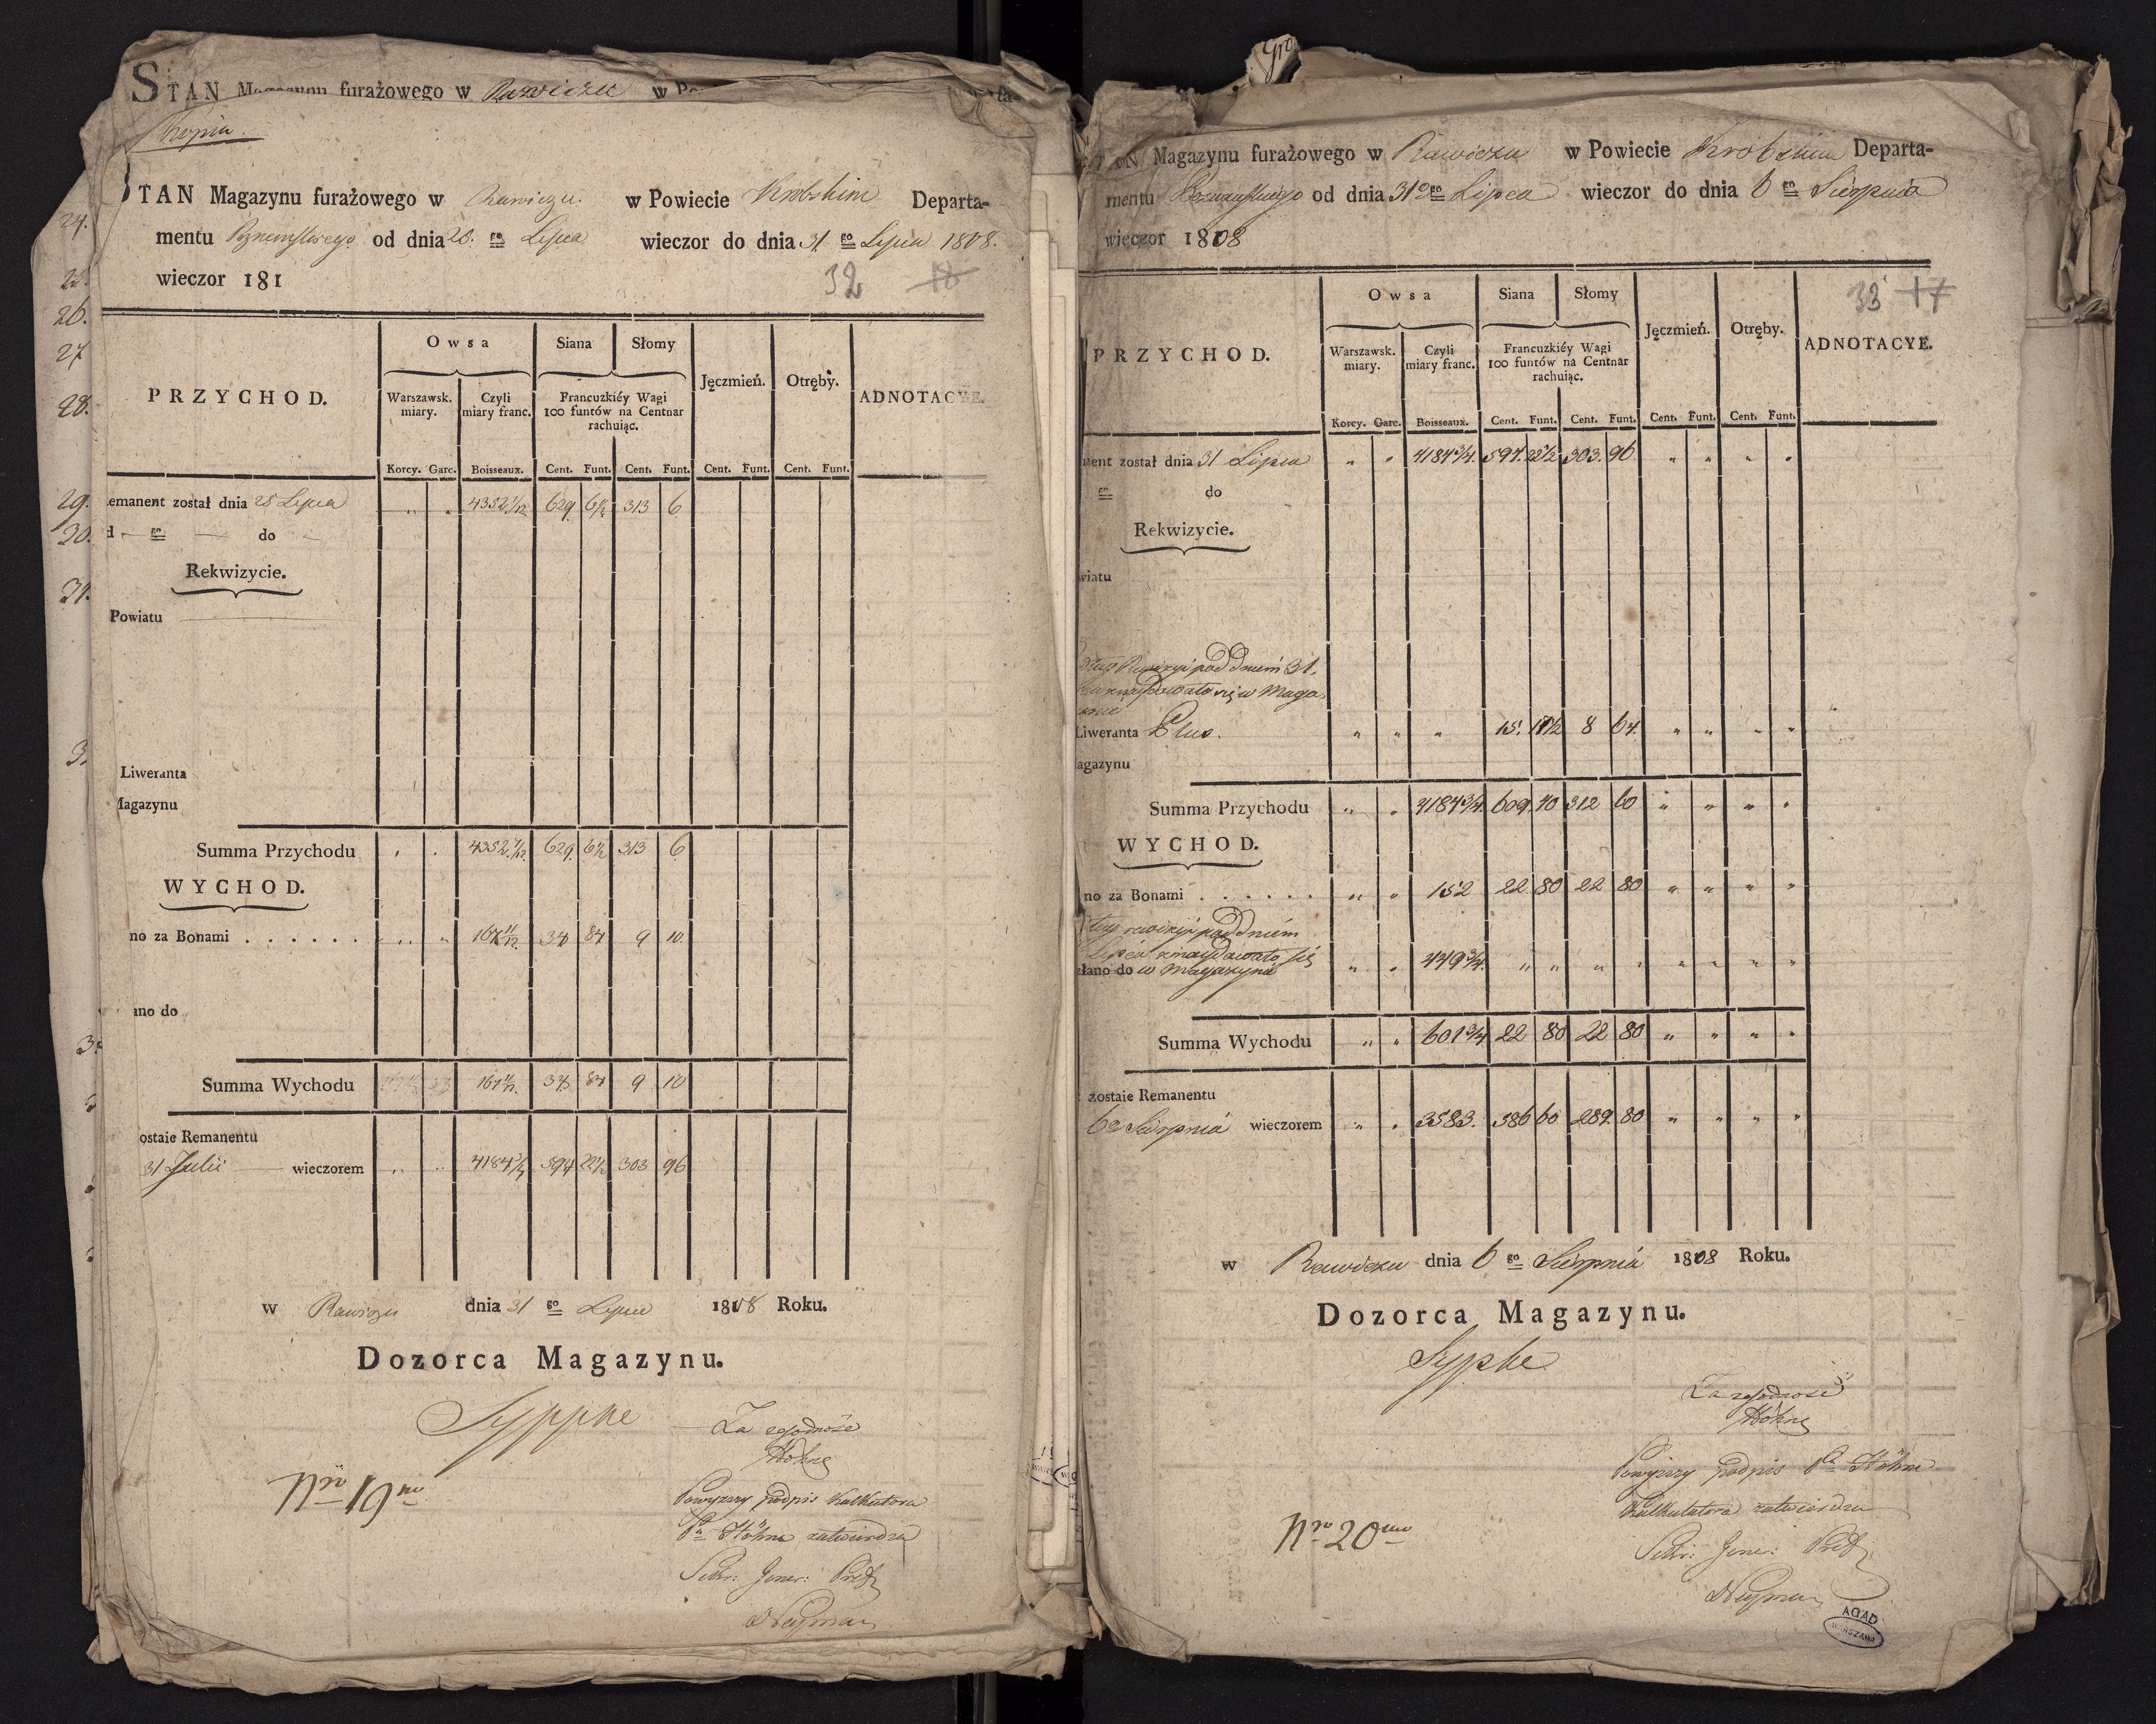 STAN Magazynu furażowego w Rawiczu w Po
Kopia.
STAN Magazynu furażowego w Rawiczu. w Powiecie Krobskim Departa-
mentu Poznańskiego od dnia 28. go Lipca wieczor do dnia 31. go Lipca 1808.
wieczor 181
32 16
PRZYCHOD.
Owsa Siana Słomy Jęczmień. Otręby. ADNOTACYE.
Warszawsk. miary. Czyli miary franc. Francuzkiéy Wagi 100 funtów na Centnar rachuiąc.
Korcy. Garc. Boisseaux. Cent. Funt. Cent. Funt. Cent. Funt. Cent. Funt.
emanent został dnia 28 Lipca " " 4352 1/12 629 6 1/2 313 6
d — go — do —
Rekwizycie.
Powiatu
Liweranta
Magazynu
Summa Przychodu " " 4352 1/12 629 6 1/2 313 6
WYCHOD.
no za Bonami . . . . . . " " 167 11/12 34 84 9 10
ano do
Summa Wychodu 167 11/12 34 84 9 10
ostaie Remanentu
31 Julii wieczorem " " 4184 3/4 594 22 1/2 303 96
w Rawiczu dnia 31 go Lipca 1808 Roku.
Dozorca Magazynu.
Syppke
Za zgodność
Höhne
Nro 19no
Powyższy podpis Kalkulatora
Pa Höhne zatwierdza
Sekr: Gener: Pref
Neyman
24.
25.
26.
27
28.
29.
30.
31.
STAN Magazynu furażowego w Rawiczu w Powiecie Krobskim Departa-
mentu Poznańskiego od dnia 31o go Lipca wieczor do dnia 6 go Sierpnia
wieczor 1808
33 17
PRZYCHOD.
Owsa Siana Słomy Jęczmień. Otręby. ADNOTACYE.
Warszawsk. miary. Czyli miary franc. Francuzkiéy Wagi 100 funtów na Centnar rachuiąc.
Korcy. Garc. Boisseaux. Cent. Funt. Cent. Funt. Cent. Funt. Cent. Funt.
nent został dnia 31 Lipca " " 4184 3/4. 594. 22 1/2 303. 96 " " " "
go do
Rekwizycie.
wiatu
Rewizyi pod dniem 31.
znaydowało się w Maga-
zynie
Liweranta Plus. " " " 15. 17 1/2 8 64. " " " "
agazynu
Summa Przychodu " " 4184 3/4. 609. 40 312 60 " " " "
WYCHOD.
no za Bonami . . . . . . " " 152 22 80 22 80 " " " "
rewizyi pod dniem
Lipca znaydowało się
słano do w Magazynie " " 449 3/4. " " " " " " " "
Summa Wychodu " " 601 3/4 22 80 22 80 " " " "
zostaie Remanentu
6o Sierpnia wieczorem " " 3583. 586 60 289. 80 " " " "
w Rawiczu dnia 6 go Sierpnia 1808 Roku.
Dozorca Magazynu.
Syppke
Za zgodność
Höhne
Powyższy podpis Pa Höhne
Kalkulatora zatwierdza
Nro 20mo
Sekr: Gener: Pref
Neyman
AGAD
WARSZAWA